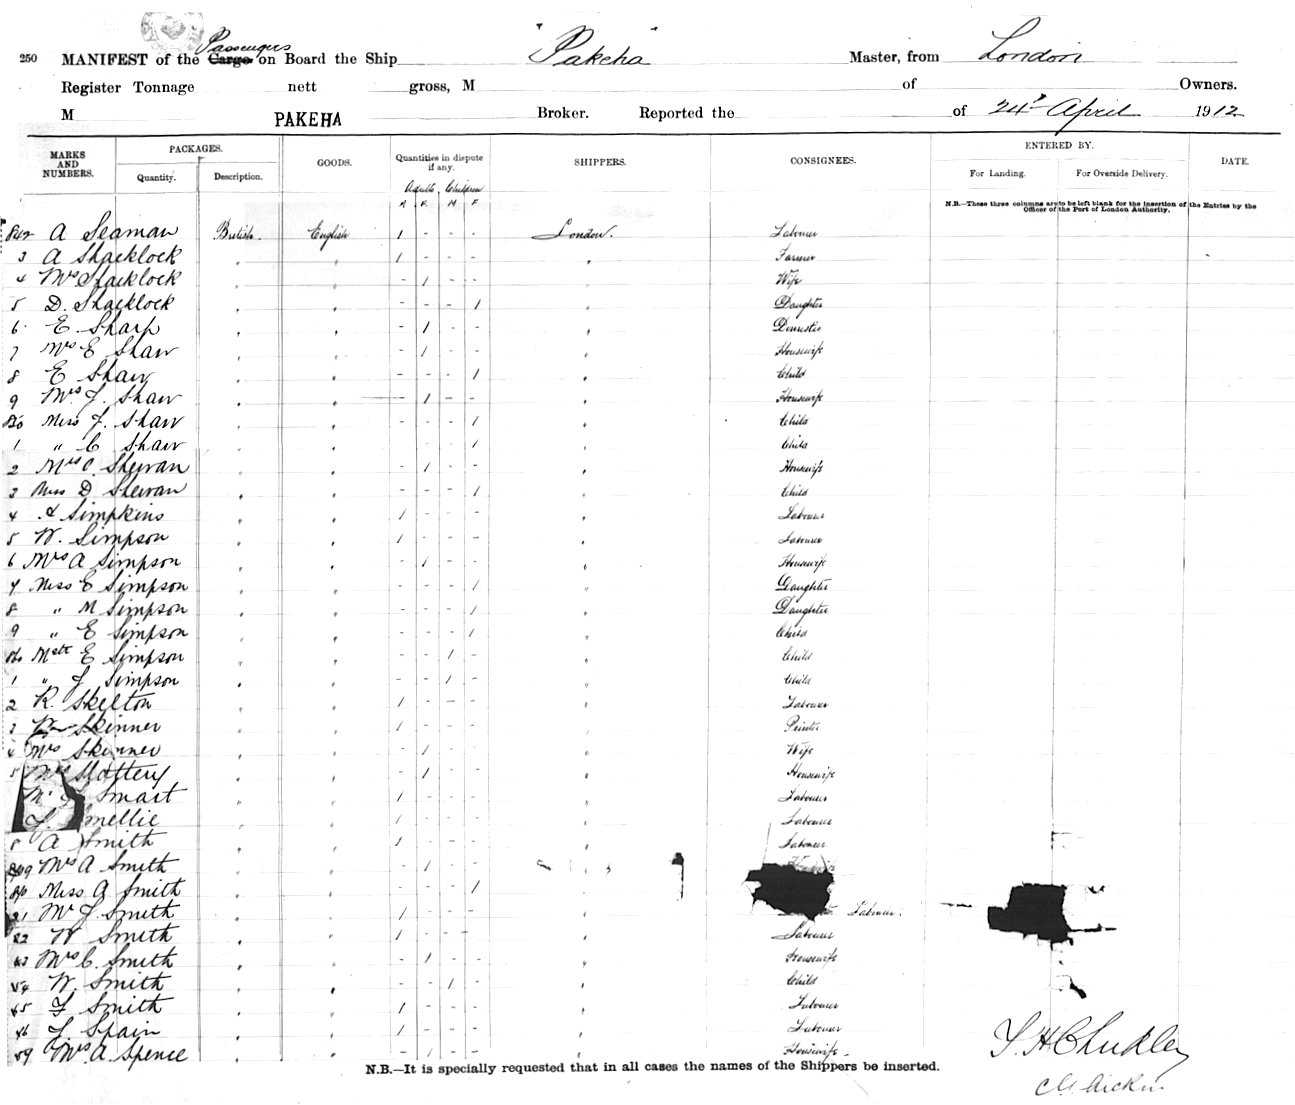 250 MANIFEST of the Cargo Passengers on Board the Ship "Pakeha" Master, from London
Register Tonnage nett gross, M of Owners.
M PAKEHA Broker. Reported the of 24th April 1912
MARKS AND NUMBERS. PACKAGES. Quantity. Description. GOODS. Quantities in dispute if any. SHIPPERS. CONSIGNEES. ENTERED BY. For Landing. For Overside Delivery. DATE.
Adults Children
M F M F
N.B.—These three columns are to be left blank for the insertion of the Entries by the
Officer of the Port of London Authority.
842 A Seaman British. English 1 - - - London. Labourer
3 A Shacklock " " 1 - - - " Farmer
4 Mrs Shacklock " " - 1 - - " Wife
5 D. Shacklock " " - - - 1 " Daughter
6 E Sharp " " - 1 - - " Domestic
7 Mrs E Shaw " " - 1 - - " Housewife
8 E Shaw " " - - - 1 " Child
9 Mrs J. Shaw " " - 1 - - " Housewife
850 Miss J. Shaw " " - - - 1 " Child
1 " C Shaw " " - - - 1 " Child
2 Mrs O. Shewan " " - 1 - - " Housewife
3 Miss D Shewan " " - - - 1 " Child
4 A Simpkins " " 1 - - - " Labourer
5 W. Simpson " " 1 - - - " Labourer
6 Mrs A Simpson " " - 1 - - " Housewife
7 Miss E Simpson " " - - - 1 " Daughter
8 " M Simpson " " - - - 1 " Daughter
9 " E Simpson " " - - - 1 " Child
860 Mstr E Simpson " " - - 1 - " Child
1 " J Simpson " " - - 1 - " Child
2 R. Skelton " " 1 - - - " Labourer
3 Skinner " " 1 - - - " Printer
4 Mrs Skinner " " - 1 - - " Wife
5 Mrs Slattery " " - 1 - - " Housewife
Smart " " 1 - - - " Labourer
Smellie " " 1 - - - " Labourer
8 A Smith " " 1 - - - Labourer
869 Mrs A Smith " " - 1 - -
Miss A Smith " " - - - 1
Mr J Smith " " 1 - - - Labourer.
W Smith " " 1 - - - " Labourer
Mrs C. Smith " " - 1 - - " Housewife
W. Smith " " - - 1 - " Child
F Smith " " 1 - - - " Labourer
Spain " " 1 - - - " Labourer
Mrs A. Spence " " - 1 - - " Housewife
N.B.—It is specially requested that in all cases the names of the Shippers be inserted.